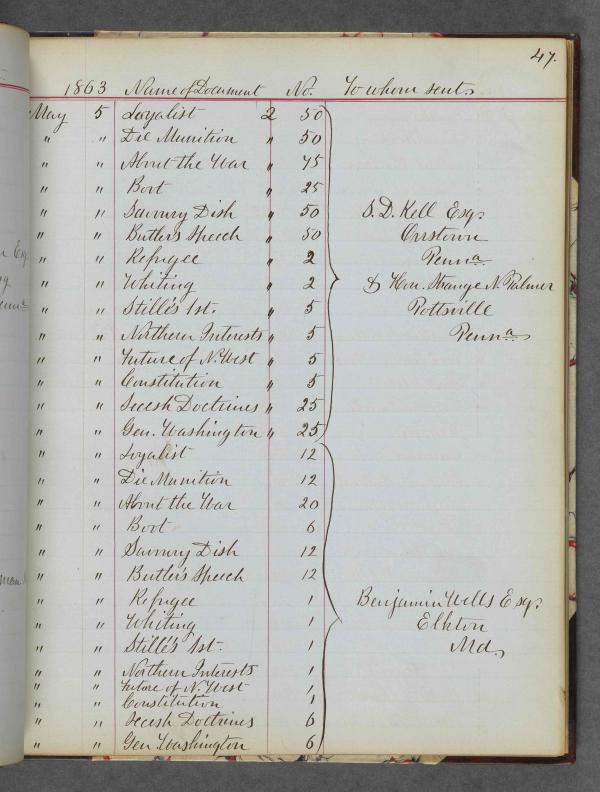 47.
1863 Name of Document No. To whom sent.
May 5 Loyalist 2 50
" " Die Munition " 50
" " About the War " 75
" " Boot " 25
" " Savoury Dish " 50 S. D. Kell Esq.
" " Butler's Speech " 50 Orrstown
" " Refugee " 2 Penna.
" " Whiting " 2 & Hon. Strange N. Palmer
" " Stillé's 1st. " 5 Pottsville
" " Northern Interests " 5 Penna.
" " Future of N. West " 5
" " Constitution " 5
" " Secesh Doctrines " 25
" " Gen. Washington " 25
" " Loyalist 12
" " Die Munition 12
" " About the War 20
" " Boot 6
" " Savoury Dish 12
" " Butler's Speech 12
" " Refugee 1 Benjamin Wells Esq.
" " Whiting 1 Elkton
" " Stillé's 1st. 1 Md.
" " Northern Interests 1
" " Future of N. West 1
" " Constitution 1
" " Secesh Doctrines 6
" " Gen. Washington 6